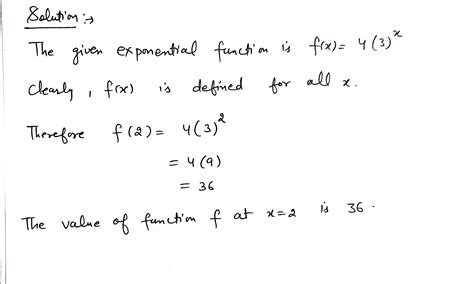 Solution :→
The given exponential function is f(x) = 4(3)^x
Clearly, f(x) is defined for all x.
Therefore f(2) = 4(3)^2
= 4(9)
= 36
The value of function f at x=2 is 36.